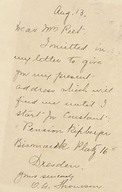 Aug. 13.
Dear Mr Peet
I omitted in
my letter to give
you my present
address which will
find me until I
start for Constant:
Pension Kepberger
Bismarck Platz 16
Dresden
yours sincerely